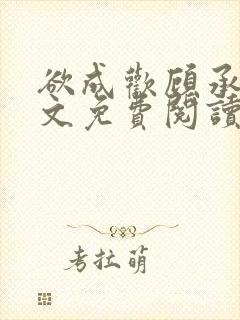 欲成歡顧承
文免費閱讀
考拉萌